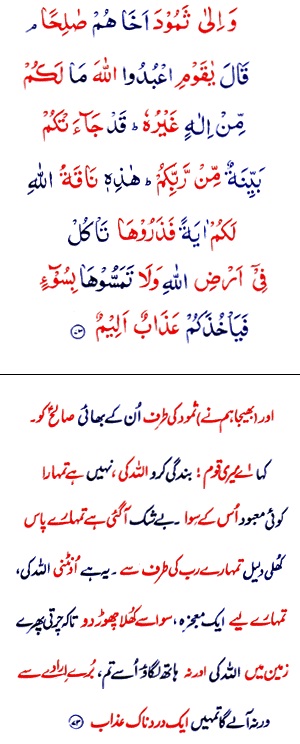 وَاِلٰى ثَمُوْدَ اَخَا هُمْ صٰلِحًا م
قَالَ يٰقَوْمِ اعْبُدُوا اللهَ مَا لَكُمْ
مِّنْ اِلٰهٍ غَيْرُهٗ ؕ قَدْ جَآءَ تْكُمْ
بَيِّنَةٌ مِّنْ رَّبِّكُمْ ؕ هٰذِهٖ نَاقَةُ اللهِ
لَكُمْ اٰيَةً فَذَرُوْهَا تَاْ كُلْ
فِىْۤ اَرْضِ اللهِ وَلَا تَمَسُّوْهَا بِسُوْٓءٍ
فَيَاْخُذَكُمْ عَذَابٌ اَلِيْمٌ ﴿۷۳﴾
اور (بھیجا ہم نے) ثمود کی طرف اُن کے بھائی صالحؑ کو۔
کہا اے میری قوم! بندگی کرو اللہ کی، نہیں ہے تمہارا
کوئی معبود اُس کے سوا۔ بے شک آ گئی ہے تمہارے پاس
کھُلی دلیل تمہارے رب کی طرف سے۔ یہ ہے اُونٹنی اللہ کی،
تمہارے لیے ایک معجزہ، سو اسے کھُلا چھوڑ دو تاکہ چرتی پھرے
زمین میں اللہ کی اور نہ ہاتھ لگاؤ اُسے تم، بُرے اِرادے سے
ورنہ آلے گا تمہیں ایک درد ناک عذاب ﴿۷۳﴾